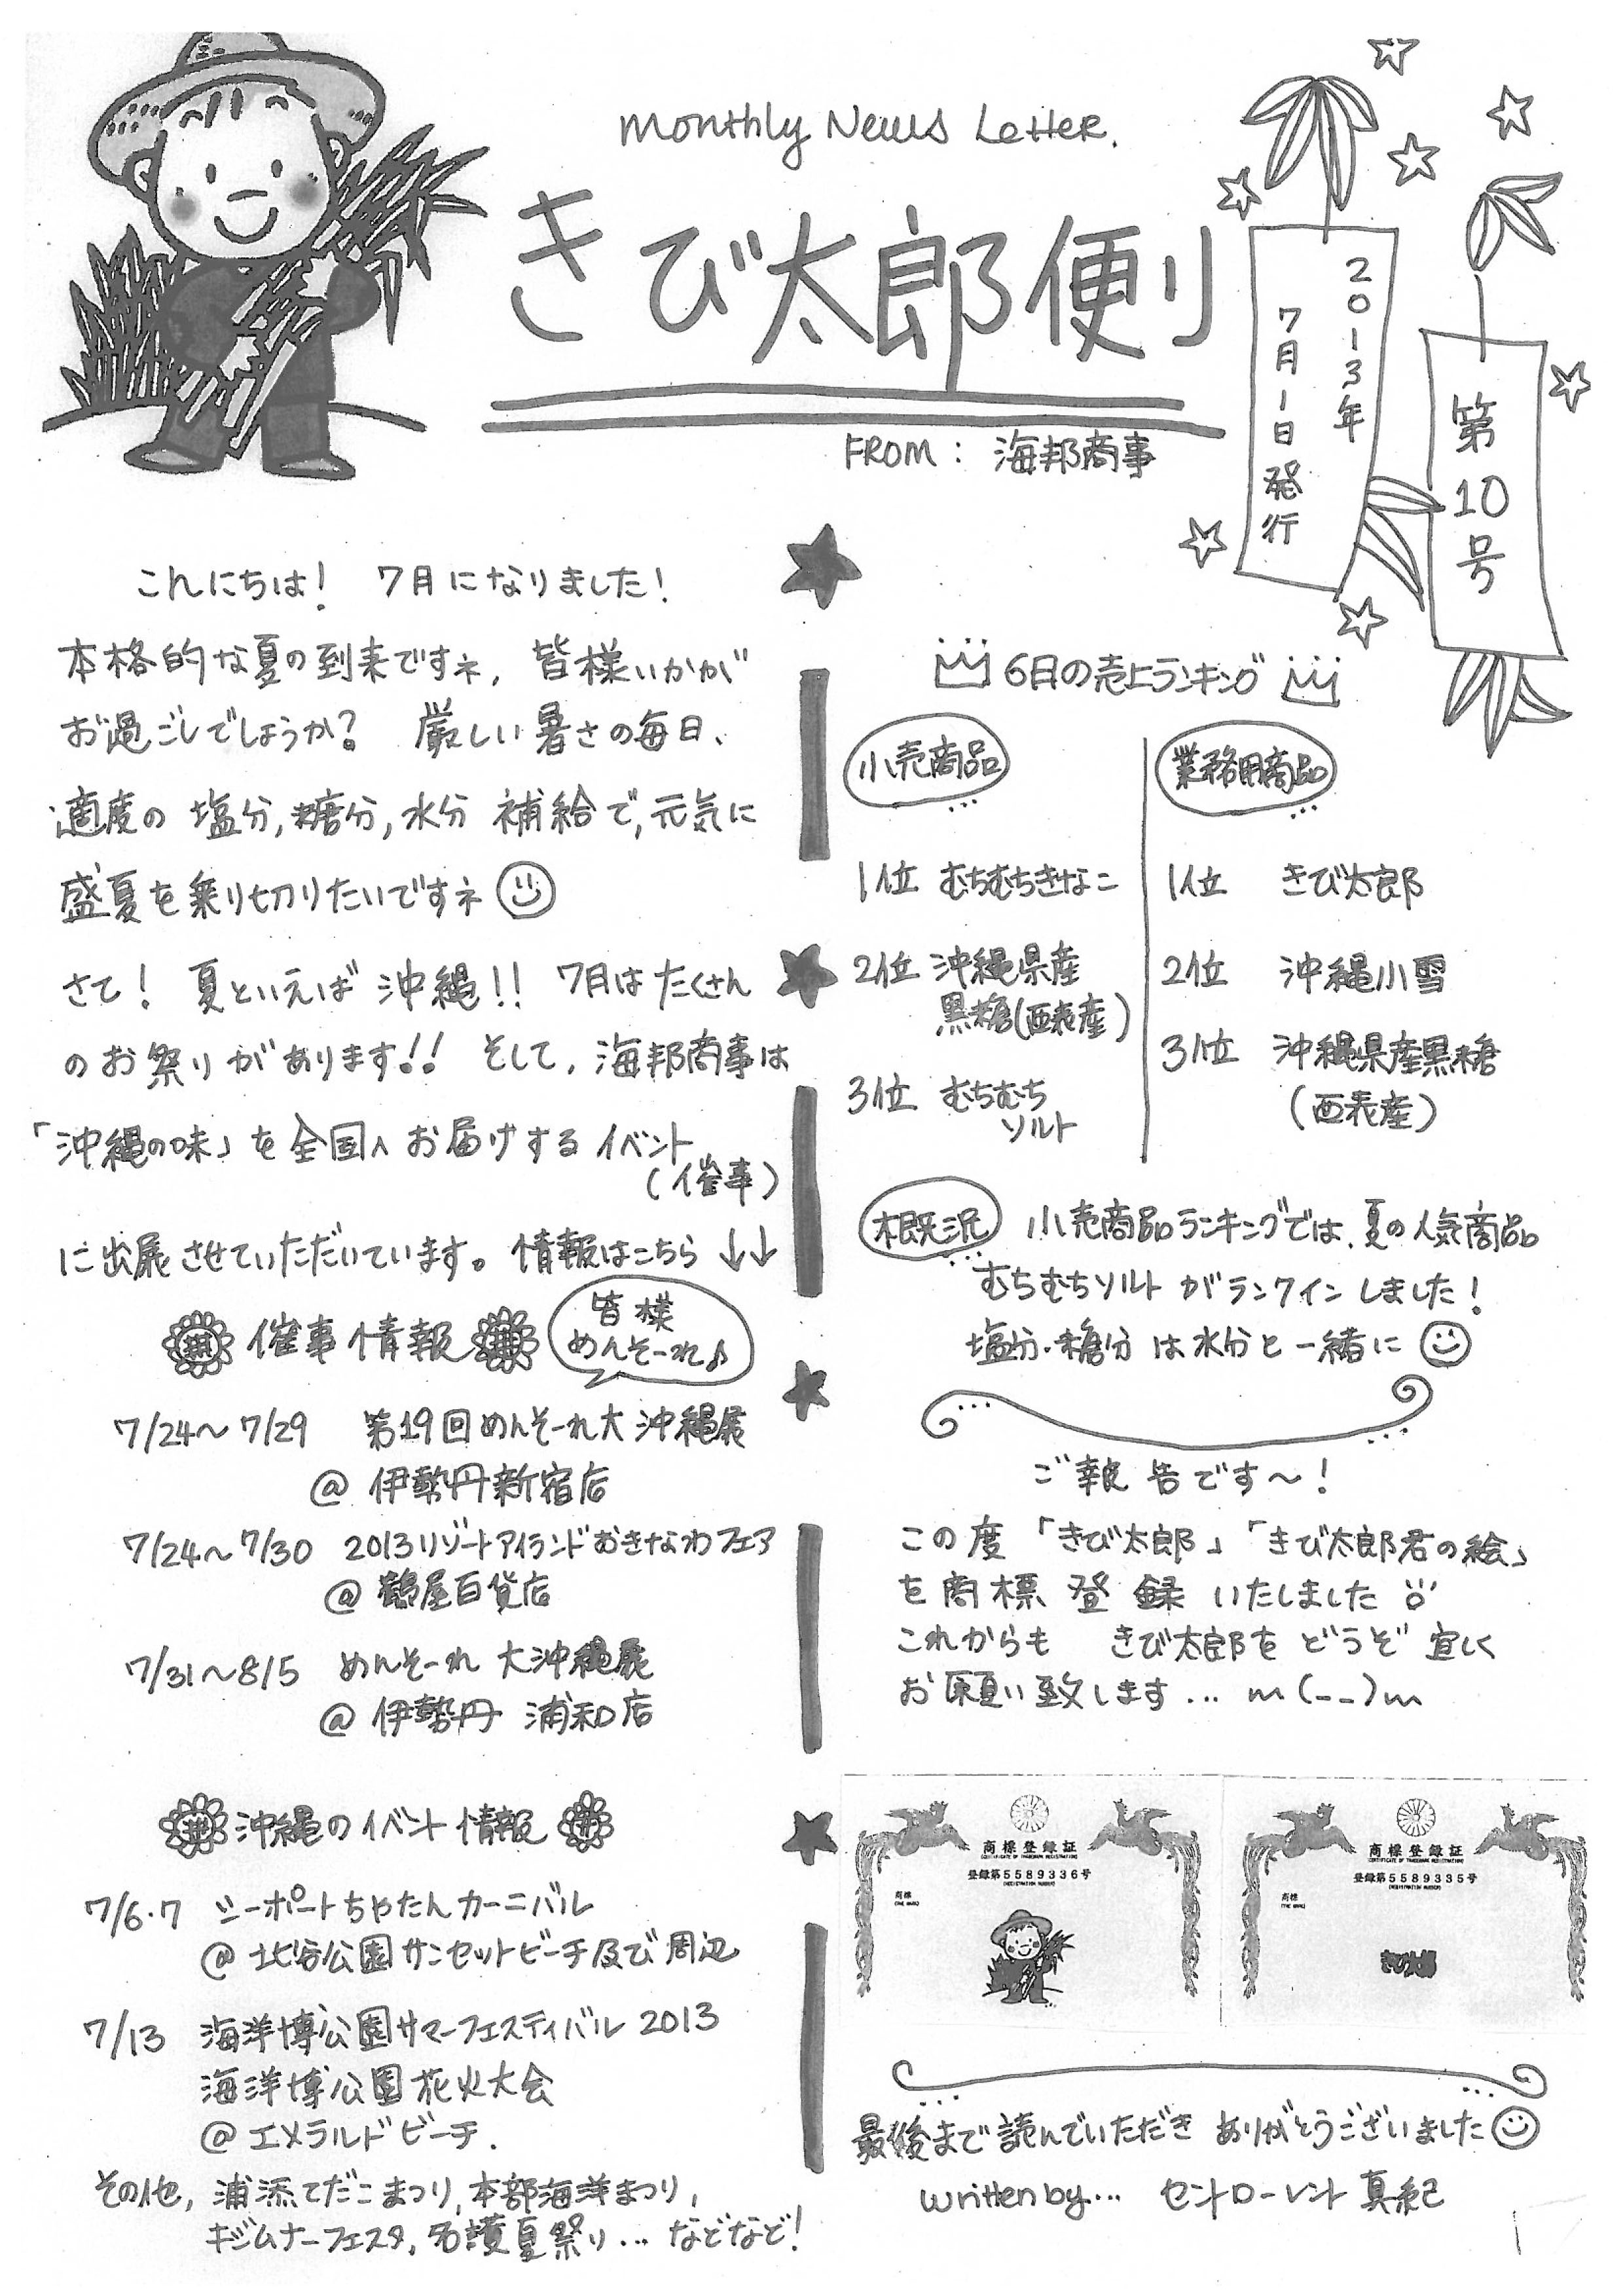 monthly News Letter.
きび太郎便り
FROM: 海邦商事
2013年
7月1日発行
第10号
こんにちは! 7月になりました!
本格的な夏の到来ですネ, 皆様いかが
お過ごしでしょうか? 厳しい暑さの毎日、
適度の 塩分,糖分,水分 補給で,元気に
盛夏を乗り切りたいですネ
さて! 夏といえば 沖縄!! 7月は たくさん
のお祭りがあります!! そして, 海邦商事は
「沖縄の味」を全国へお届けする イベント
(催事)
に出展させていただいています。情報はこちら ↓↓
催事情報
皆様
めんそーれ♪
7/24〜7/29 第19回めんそーれ大沖縄展
@ 伊勢丹新宿店
7/24〜7/30 2013リゾートアイランドおきなわフェア
@ 鶴屋百貨店
7/31〜8/5 めんそーれ 大沖縄展
@ 伊勢丹 浦和店
沖縄のイベント情報
7/6・7 シーポートちゃたんカーニバル
@ 北谷公園サンセットビーチ及び周辺
7/13 海洋博公園サマーフェスティバル 2013
海洋博公園花火大会
@ エメラルドビーチ.
その他, 浦添てだこまつり,本部海洋まつり,
キジムナーフェスタ, 名護夏祭り... などなど!
6月の売上ランキング
小売商品
1位 むちむちきなこ
2位 沖縄県産
黒糖(西表産)
3位 むちむち
ソルト
業務用商品
1位 きび太郎
2位 沖縄小雪
3位 沖縄県産黒糖
(西表産)
概況 小売商品ランキングでは、夏の人気商品
むちむちソルト がランクイン しました!
塩分・糖分 は 水分と 一緒に
ご報告です〜!
この度 「きび太郎」「きび太郎君の絵」
を商標 登録 いたしました
これからも きび太郎を どうぞ 宜しく
お願い致します... m(__)m
商標登録証
(CERTIFICATE OF TRADEMARK REGISTRATION)
登録第5589336号
(REGISTRATION NUMBER)
商標
(THE MARK)
商標登録証
(CERTIFICATE OF TRADEMARK REGISTRATION)
登録第5589335号
(REGISTRATION NUMBER)
商標
(THE MARK)
きび太郎
最後まで読んでいただき ありがとうございました
written by... セントローレント 真紀